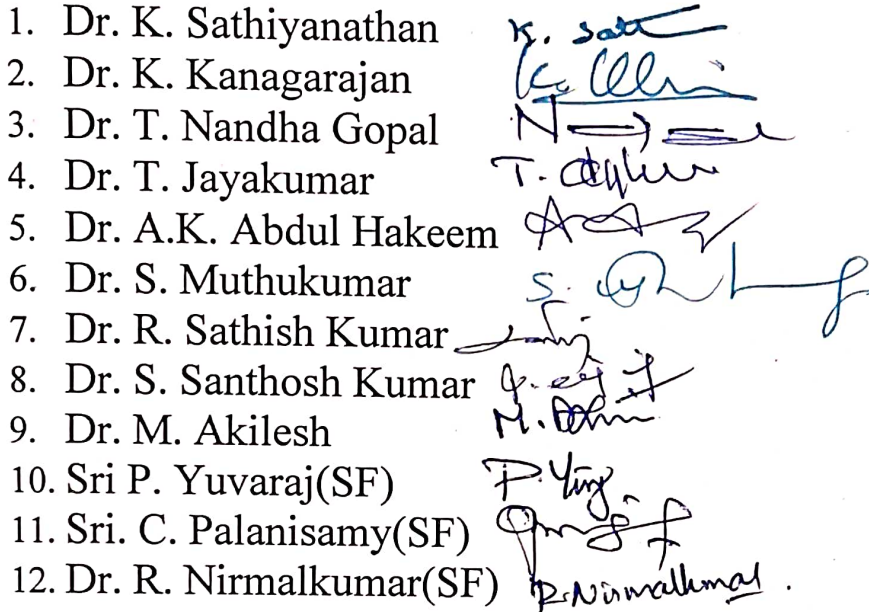 1. Dr. K. Sathiyanathan K. Sat
2. Dr. K. Kanagarajan
3. Dr. T. Nandha Gopal
4. Dr. T. Jayakumar
5. Dr. A.K. Abdul Hakeem
6. Dr. S. Muthukumar
7. Dr. R. Sathish Kumar
8. Dr. S. Santhosh Kumar
9. Dr. M. Akilesh
10. Sri P. Yuvaraj(SF)
11. Sri. C. Palanisamy(SF)
12. Dr. R. Nirmalkumar(SF) R. Nirmalkumar.